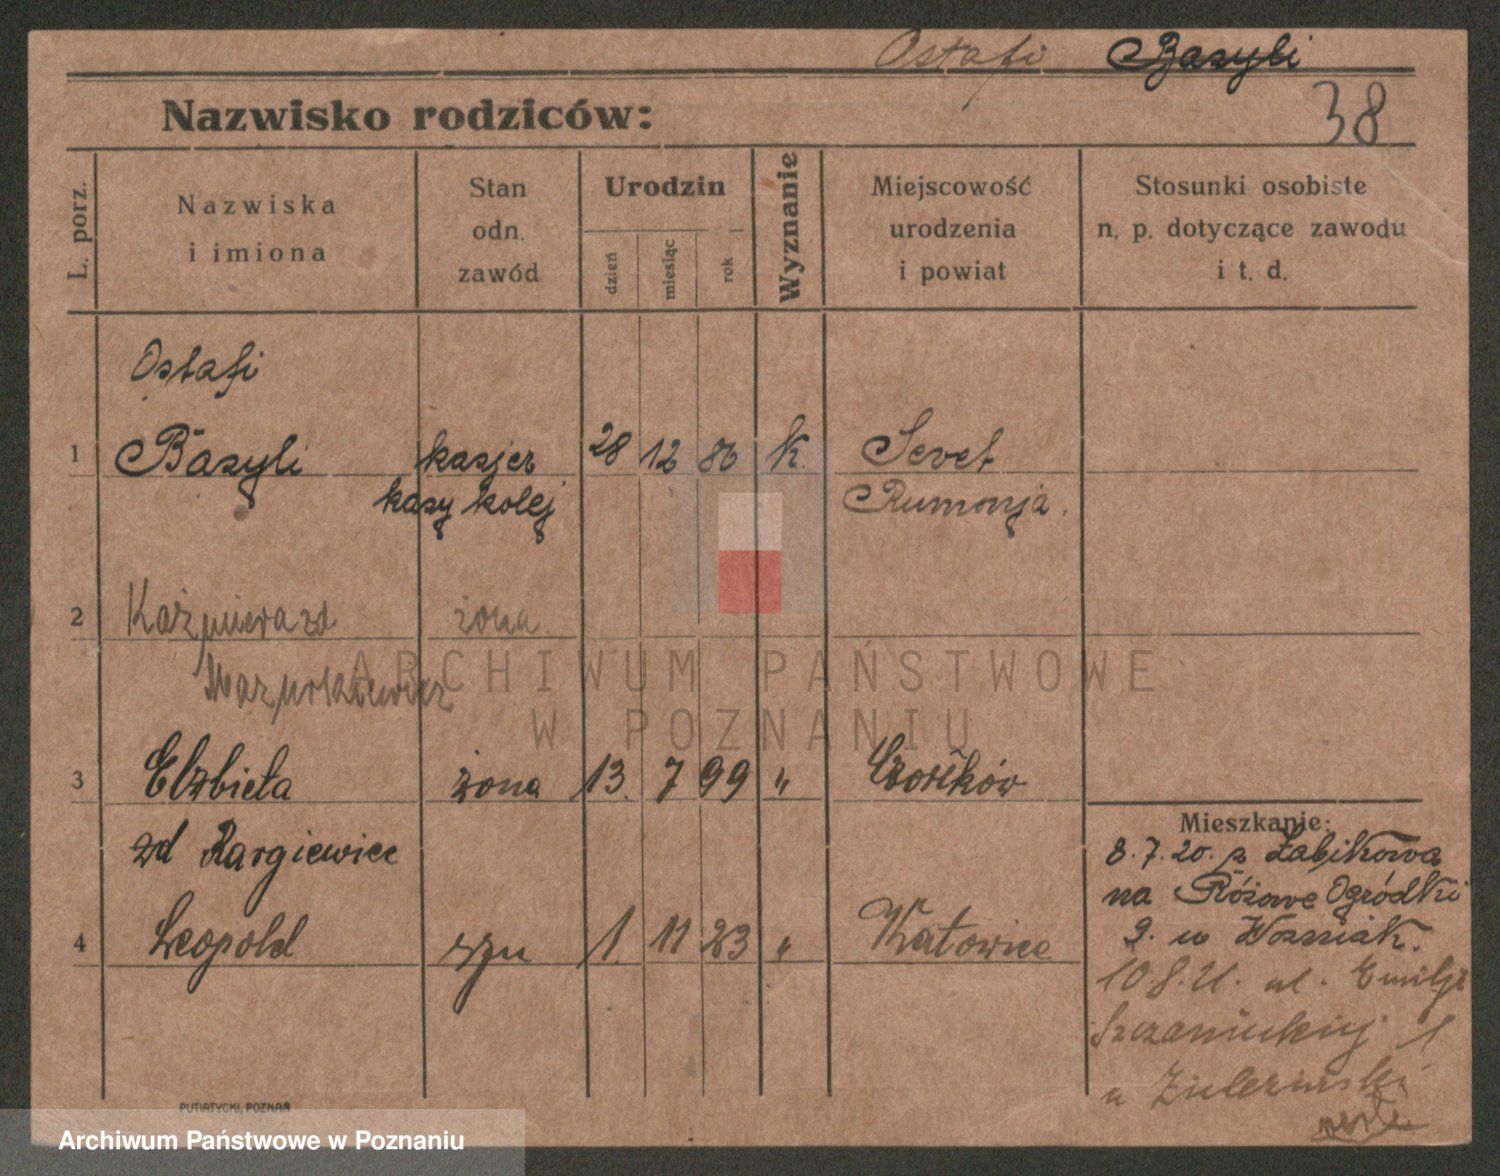 Ostafi Bazyli
Nazwisko rodziców:
38
L. porz.
Nazwiska
i imiona
Stan
odn.
zawód
Urodzin
dzień
miesiąc
rok
Wyznanie
Miejscowość
urodzenia
i powiat
Stosunki osobiste
n. p. dotyczące zawodu
i t. d.
Ostafi
1 Bazyli kasjer 28 12 86 k. Seret
kasy kolej Rumonja.
2 Kaźmiera zd żona
ARCHIWUM PAŃSTWOWE
W POZNANIU
3 Elżbieta żona 13. 7 99 " Czortków
zd Rargiewicz
Mieszkanie:
8.7.20. z Żabikowa
na Różowe Ogródki
9. u Woźniak.
4 Leopold syn 1. 11 23 " Katowice
10.8.21. ul. Emilji
Szczanieckiej 1
u Zielezińskiej
PUTIATYCKI, POZNAŃ
Archiwum Państwowe w Poznaniu